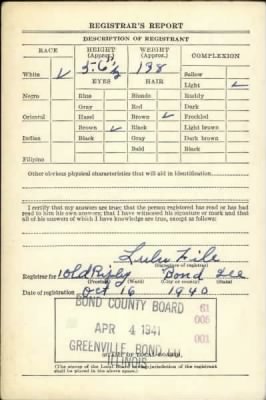 REGISTRAR'S REPORT
DESCRIPTION OF REGISTRANT
RACE HEIGHT (Approx.) WEIGHT (Approx.) COMPLEXION
White ✓ 5-6½ 138 Sallow
EYES HAIR Light ✓
Negro Blue Blonde Ruddy
Gray Red Dark
Oriental Hazel Brown ✓ Freckled
Brown ✓ Black Light brown
Indian Black Gray Dark brown
Bald Black
Filipino
Other obvious physical characteristics that will aid in identification
I certify that my answers are true; that the person registered has read or has had
read to him his own answers; that I have witnessed his signature or mark and that
all of his answers of which I have knowledge are true, except as follows:
Lulu File
(Signature of registrar)
Registrar for 1 Old Ripley Bond Ill
(Precinct) (Ward) (City or county) (State)
Date of registration Oct 16 1940
BOND COUNTY BOARD 61
005
APR 4 1941
001
GREENVILLE, BOND
ILLINOIS
(The stamp of the Local Board having jurisdiction of the registrant
shall be placed in the above space.)